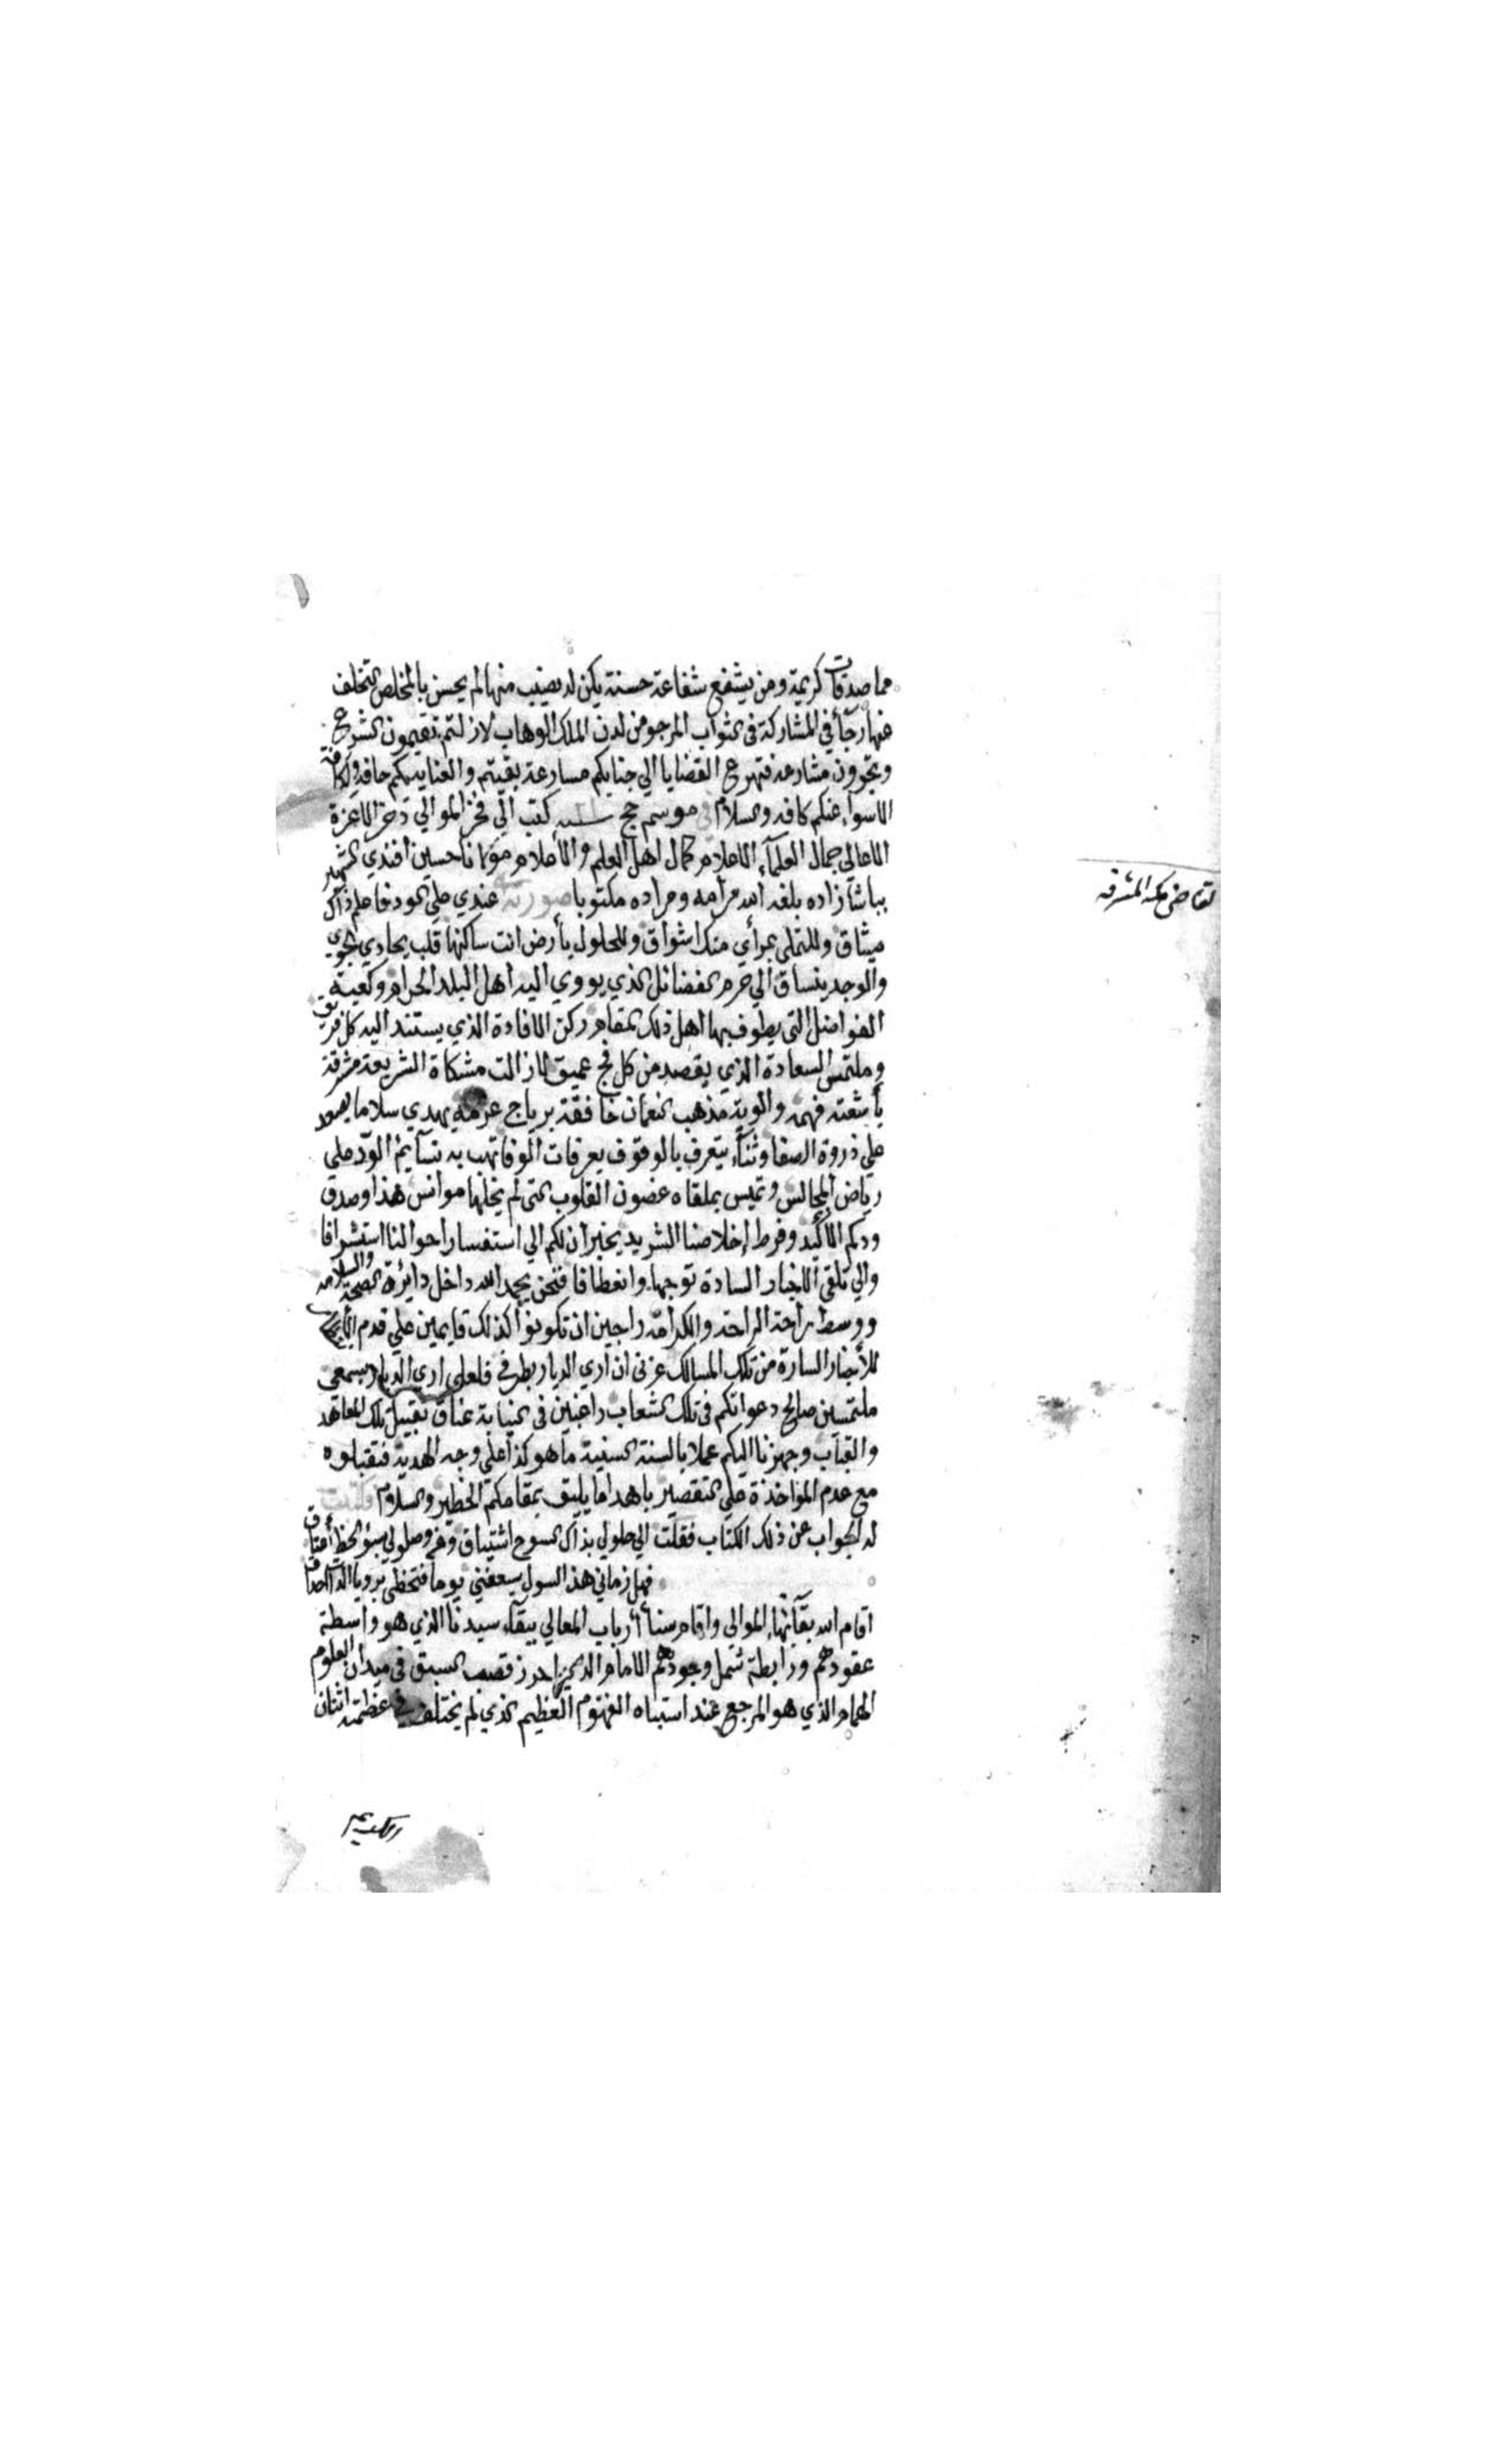 مما صدقات كريمة ومن يشفع شفاعة حسنة يكن له نصيب منها لم يحسن بالمخلص التخلف
عنها رجآ في المشاركة في الثواب المرجو من لدن الملك الوهاب لازلتم تقيمون الشرع
وتحرون مشارعه فتهرع القضايا الي جنابكم مسارعة بقيتم والعناية بكم حافه واكافة
الاسواء عنكم كافه والسلام في موسم حج سنه كتب الي فخر الموالي ذخر الاعزة
الاعالي جمال العلمآء الاعلام كمال اهل العلم والأحلام مولانا حسين أفندي الشهير
بباشا زاده بلغه الله مرامه ومراده مكتوبا صورته عندي علي العهد فاعلم ذاك
ميثاق وللتملي بمرأي منك اشواق وللحلول بأرض انت ساكنها قلب يحادي الجوي
والوجد ينساق الي حرم الفضائل الذي يووي اليه اهل البلد الحرام وكعبة
الفواضل التي يطوف بها اهل ذلك المقام ركن الافادة الذي يستند اليه كل فريق
وملتمس السعادة الذي يقصد من كل فج عميق لازالت مشكاة الشريعة مشرقة
بأشعته فهمه والوية مذهب النعمان خافقة برياح عزمه يهدي سلاما يصعد
علي ذروة الصفا وثنآء يتعرف بالوقوف بعرفات الوفا تهب به نسآيم الود علي
رياض المجالس وتميس بملقاه غصون القلوب التي لم يخلها موانس هذا وصدق
ودكم الاكيد وفرط إخلاصنا الشديد يخبر ان لكم الي استفسار احوالنا استشرافا
والي تلقي الاخبار السادة توجها وانعطافا فنحن بحمد الله داخل دائرة الصحة والسلامه
ووسط راحة الراحه والكرامه راجين ان تكونوا كذلك قايمين علي قدم
للأخبار السارة من تلك المسالك عزني ان اري الديار بطرفي فلعلي اري الديار بسمعي
ملتمسين صالح دعواتكم في تلك الشعاب راغبين في النيابة عنا في تقبيل تلك المعاهد
والقباب وجهزنا اليكم عملا بالسنة السنية ما هو كذا علي وجه الهدية فتقبلوه
مع عدم المواخذة علي التقصير باهدا ما يليق بمقامكم الخطير والسلام فكتبت
له الجواب عن ذلك الكتاب فقلت الي حلولي بذاك السوح اشتياق وفي وصلولي بسؤ الحظ
فهل زماني هذا السول يسعفني يوما فتحظي برويا الذات احداق
اقام الله بقآئها الموالي واقام سنا أرباب المعالي ببقآء سيدنا الذي هو واسطة
عقودهم ورابطة شمل وجودهم الامام الذي احرز قصب السبق في ميدان العلوم
الهمام الذي هو المرجع عند استباه الفهوم العظيم الذي لم يختلف في عظمته اثنان
لقاضي مكه المشرفه
والكريم